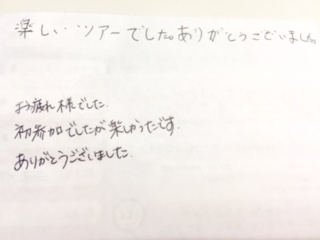 楽しいツアーでした。ありがとうございました。
お疲れ様でした.
初参加でしたが楽しかったです.
ありがとうございました.